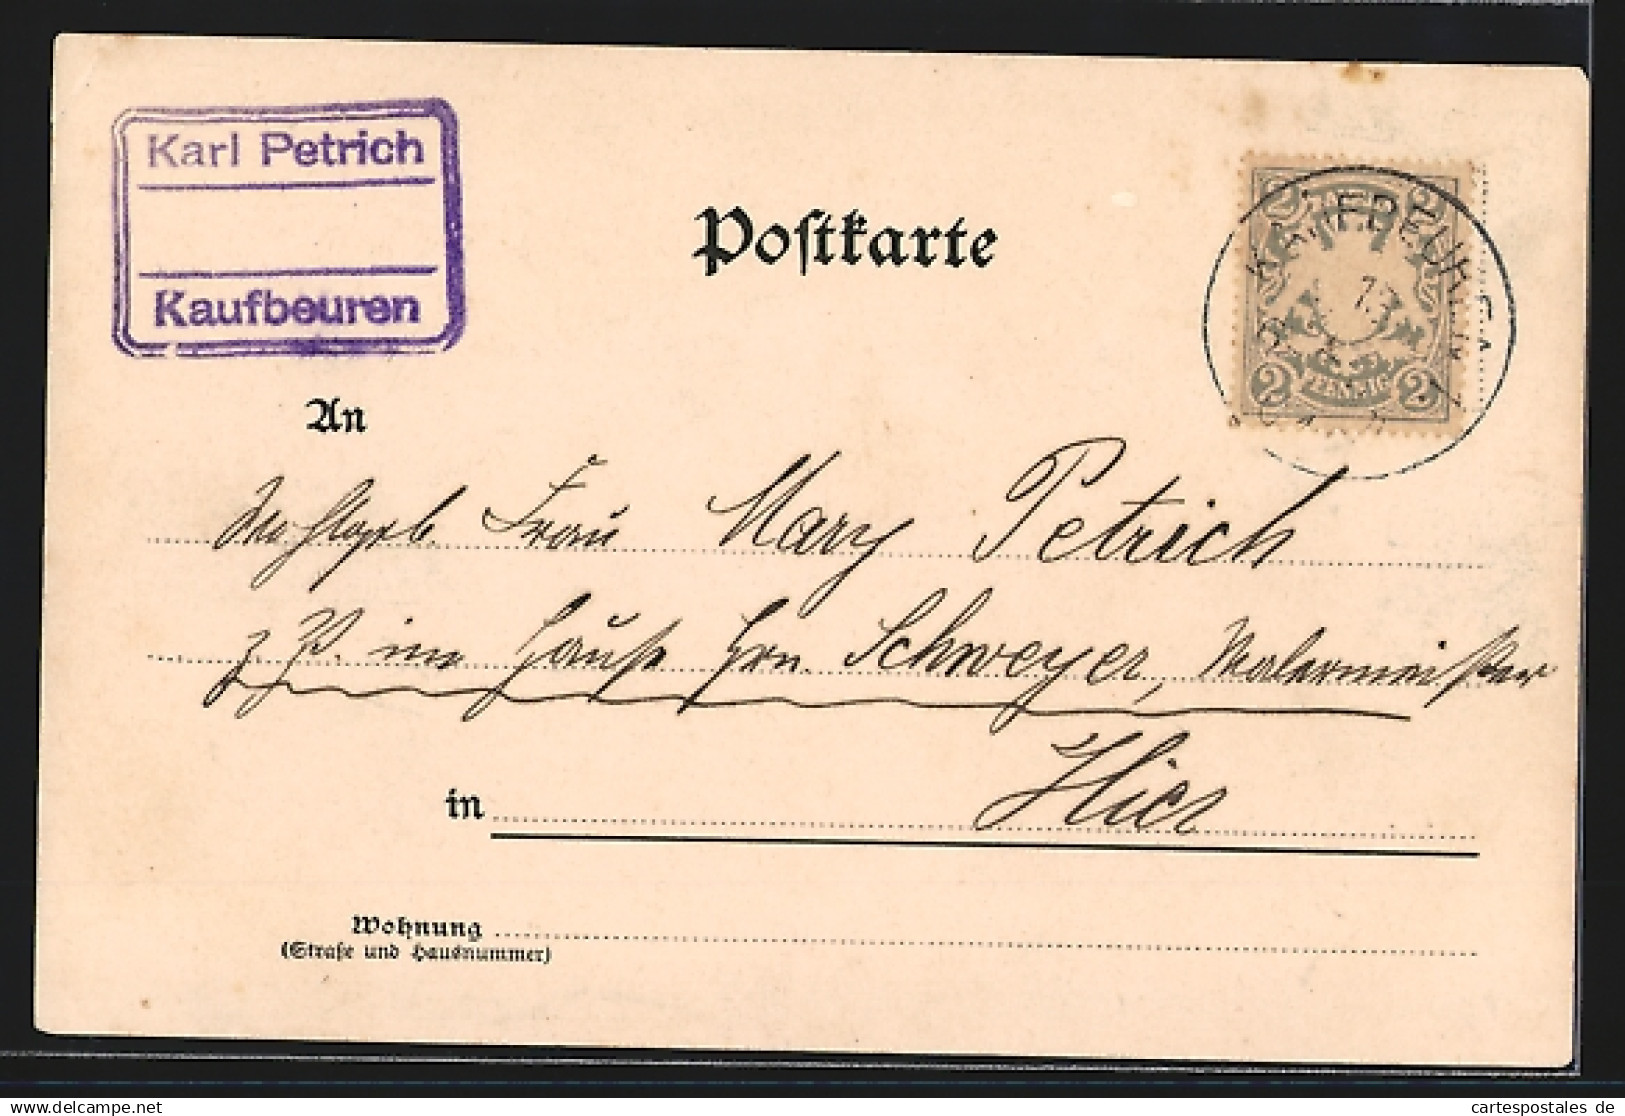 Karl Petrich
Kaufbeuren
Postkarte
KAUFBEUREN
2 2
2 PFENNIG 2
An
Wohlgeb. Frau Mary Petrich
z. Zt. im Hause Hrn. Schweyer, Malermeister
in Hier
Wohnung
(Straße und Hausnummer)
www.cartespostales.de cartespostales de